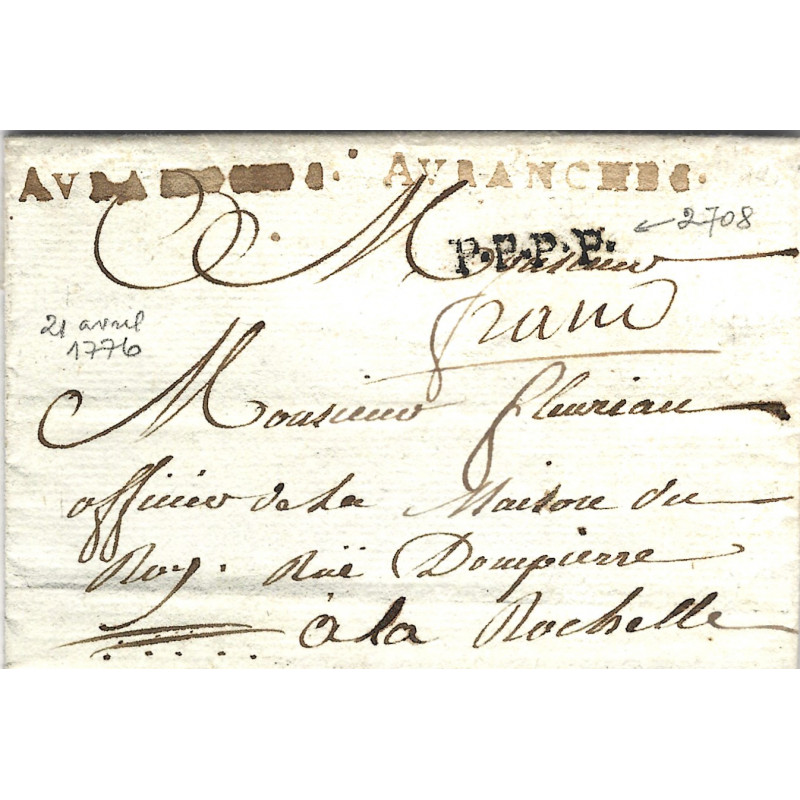 AVRANCHES. AVRANCHES.
2708
P.P.P.P.
Monsieur
franc
21 avril
1776
Monsieur fleuriau
officier de La Maison du
Roy. Ruë Dompierre
à La Rochelle